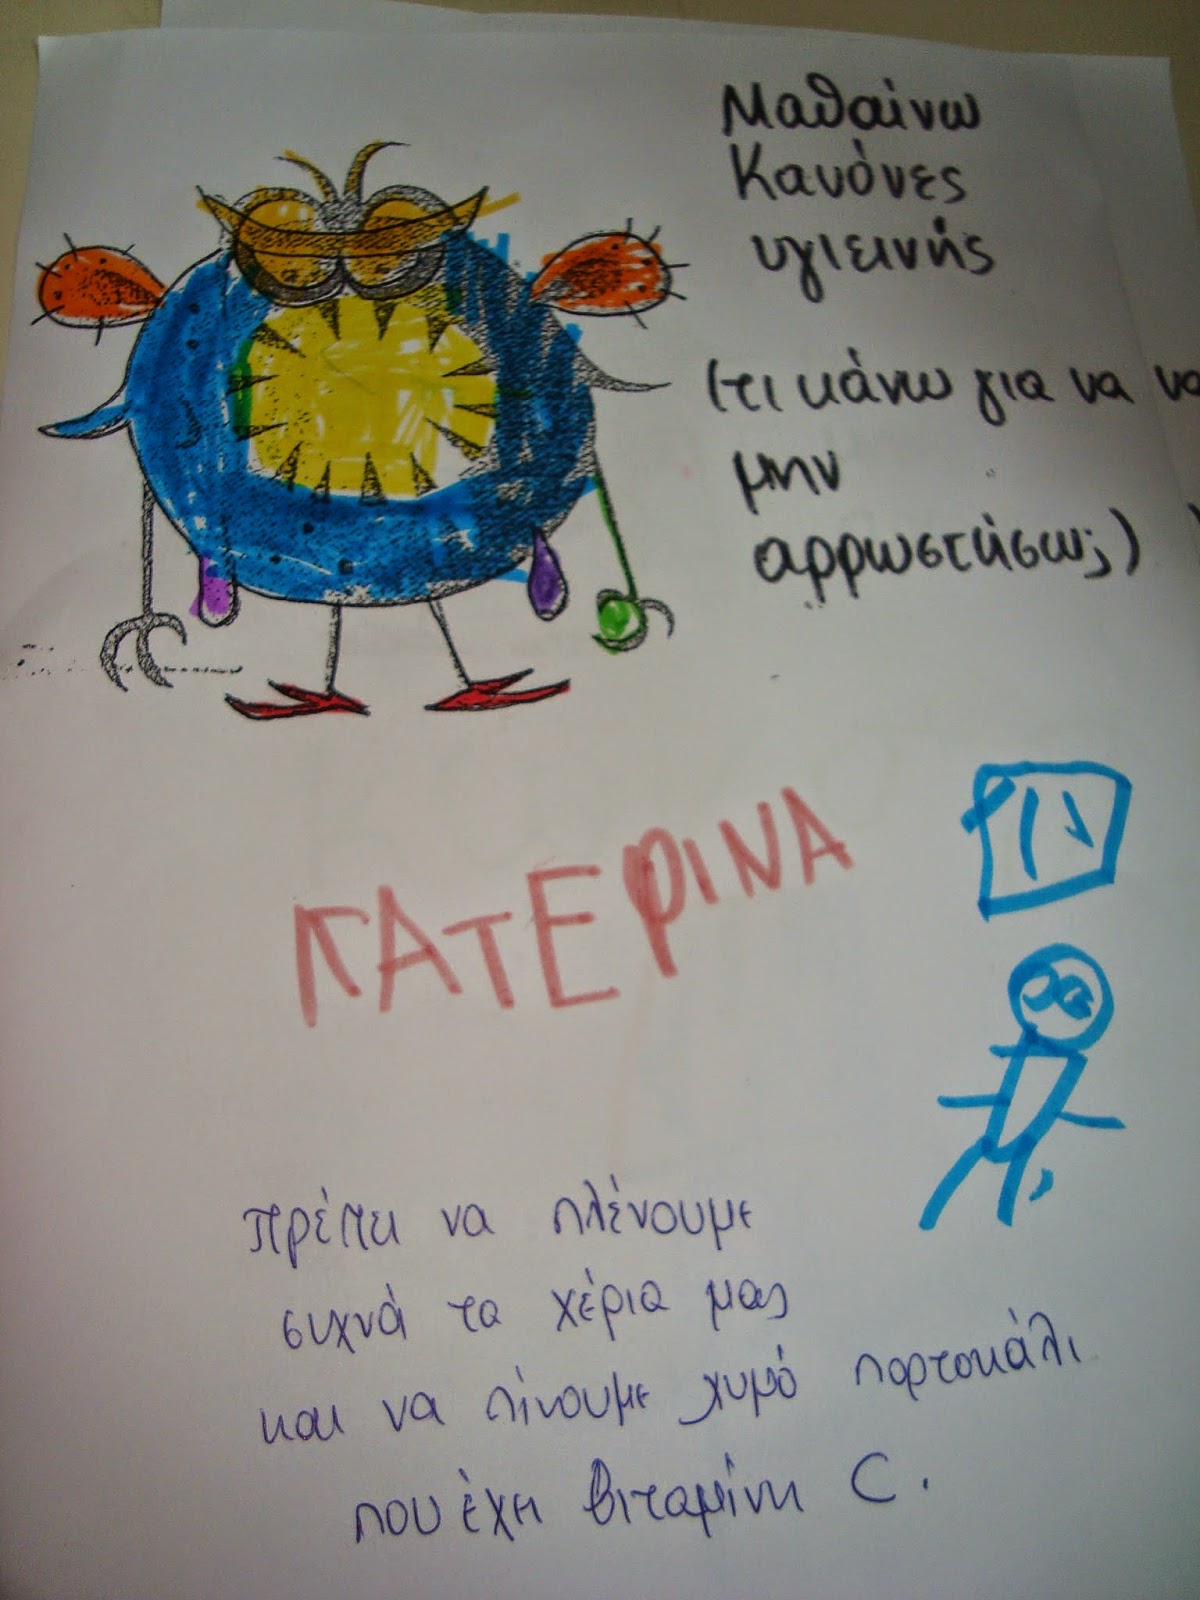 Μαθαίνω
Κανόνες
υγιεινής
(τι κάνω για να να
μην
αρρωστήσω;)
ΚΑΤΕΡΙΝΑ
πρέπει να πλένουμε
συχνά τα χέρια μας
και να πίνουμε χυμό πορτοκάλι
που έχει βιταμίνη C.